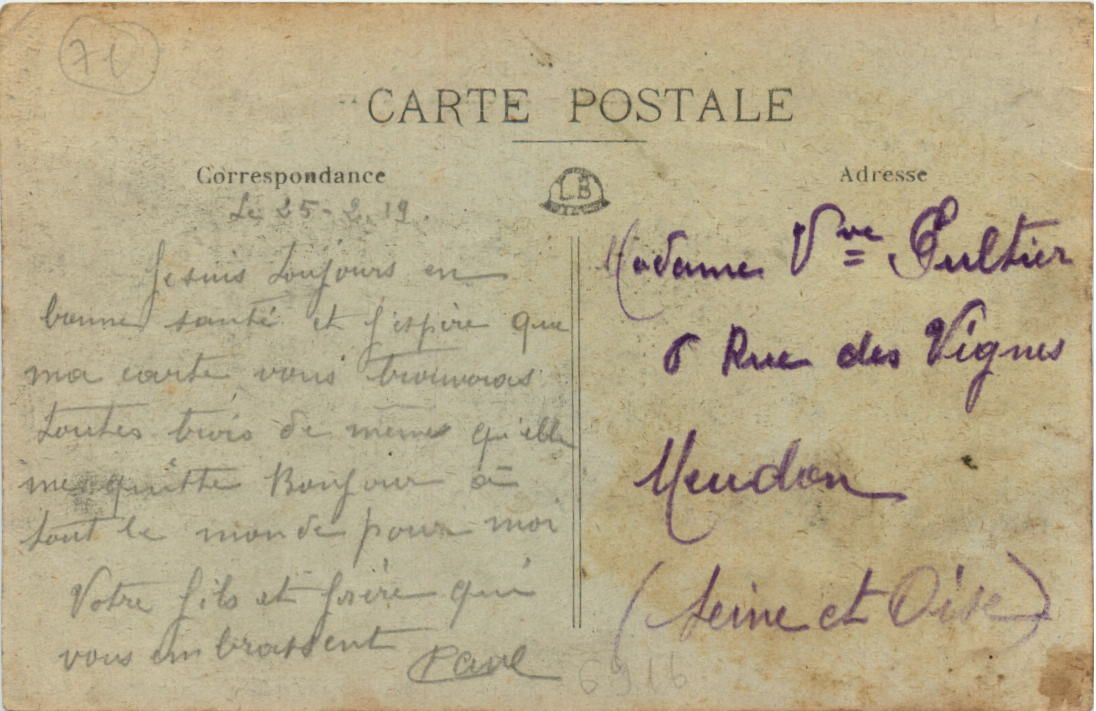 CARTE POSTALE
Correspondance
Le 25-2.19.
Je suis toujours en
bonne santé et j'espère que
ma carte vous trouveras
toutes trois de mêmes qu'elle
me quitte Bonjour à
tout le monde pour moi
Votre fils et frère qui
vous embrassent
Paul
6916
LB
Adresse
Madame Vve Pultier
6 Rue des Vignes
Meudon
(Seine et Oise)